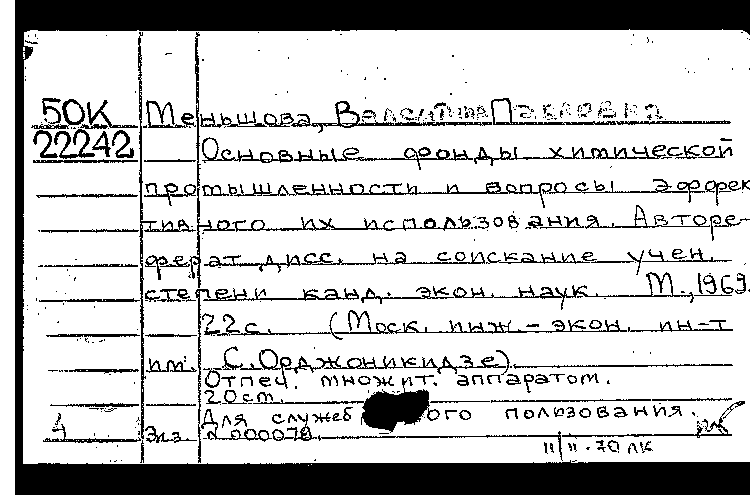 50К Меньшова, Валентина Павловна
22242 Основные фонды химической
промышленности и вопросы эффек
тивного их использования. Авторе-
ферат дисс. на соискание учен.
степени канд. экон. наук. М., 1969.
22с. (Моск. инж.-экон. ин-т
им. С. Орджоникидзе).
Отпеч. множит. аппаратом.
20см.
Для служеб ого пользования.
4 Экз. №000078.
11/II.-70 ЛК